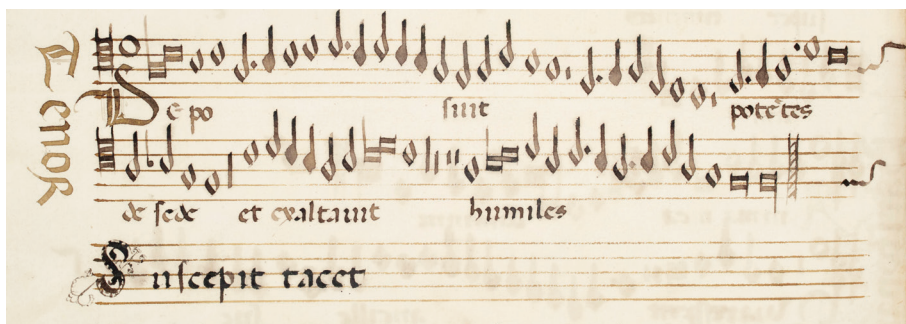 Tenor
De po suit potētes
de sede et exaltauit humiles
Suscepit tacet